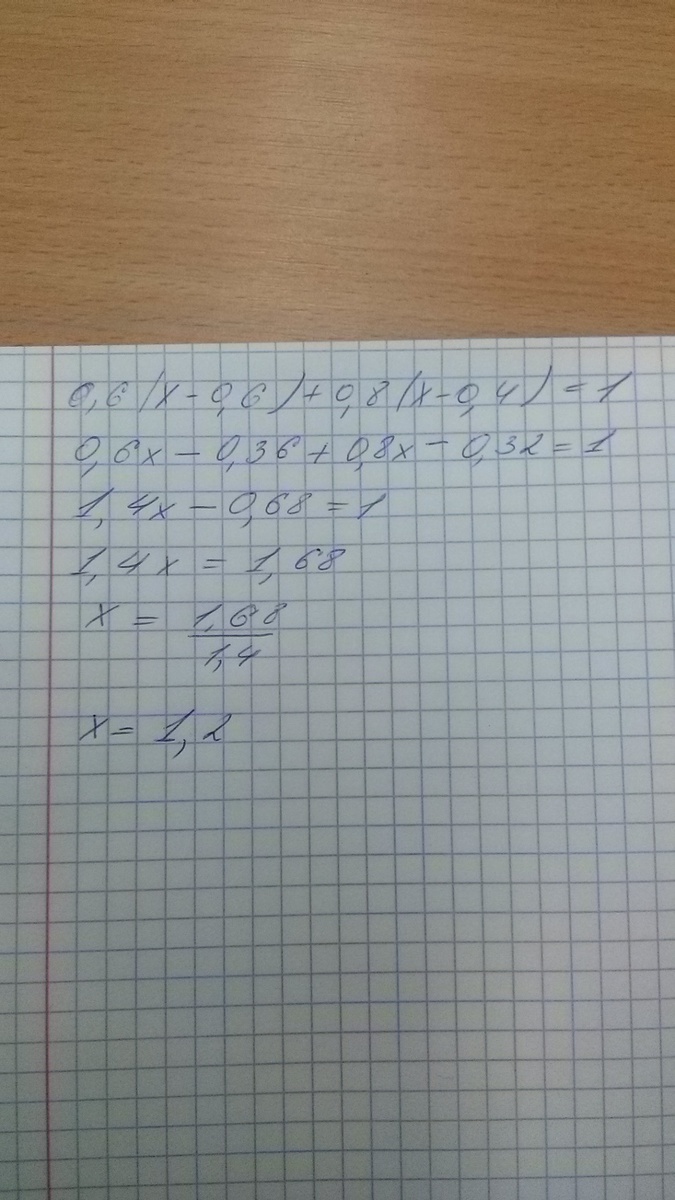 0,6(x-0,6)+0,8(x-0,4)=1
0,6x-0,36+0,8x-0,32=1
1,4x-0,68=1
1,4x=1,68
x=1,68/1,4
x=1,2